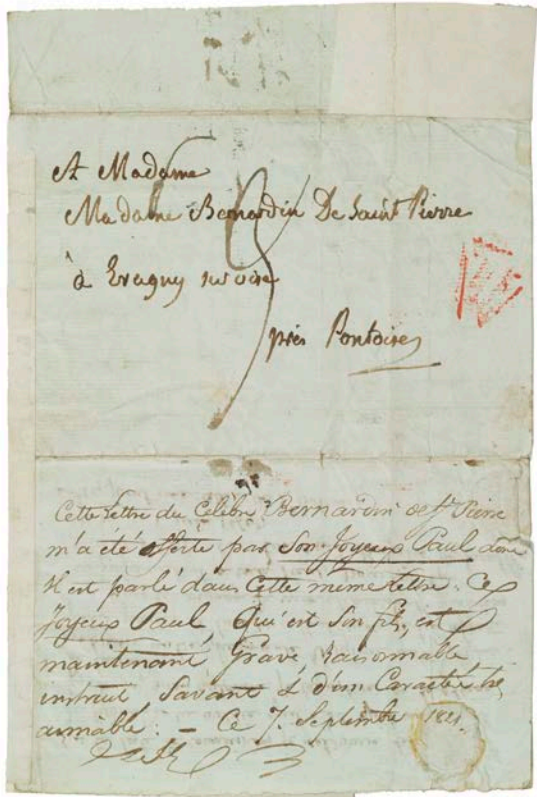 A Madame
Madame Bernardin De Saint Pierre
à Eragny sur oise
près Pontoise
5
Cette lettre du Celèbre Bernardin de St. Pierre
m'a été offerte par Son Joyeux Paul dont
Il est parlé dans Cette même lettre. Ce
Joyeux Paul, Qui est Son fils, est
maintenant Grave, Raisonnable
instruit, Savant & d'un Caractère très
aimable. — Ce 7. Septembre 1821.